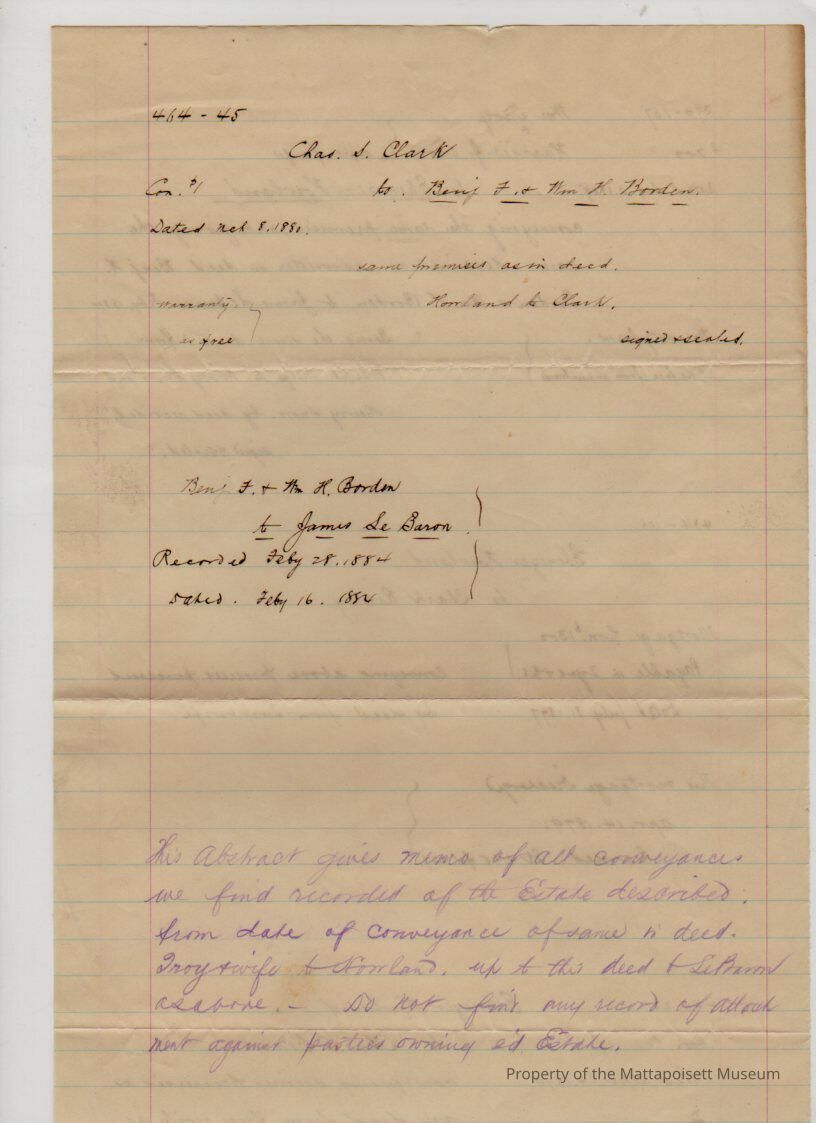 464 - 45
Chas. S. Clark
Con. $1 to. Benj F. & Wm H. Borden.
Dated Oct 8, 1880.
same premises as in deed.
warranty Howland to Clark.
as free signed & sealed.
Benj F. & Wm H. Borden
to James Le Baron.
Recorded Feby 28, 1884
Dated. Feby 16. 1884
This Abstract gives memo of all conveyances
we find recorded of the Estate described.
from date of conveyance of same in deed.
& wife to Howland. up to this deed to LeBaron
as above. - Do not find any record of attach
ment against parties owning s'd Estate.
Property of the Mattapoisett Museum